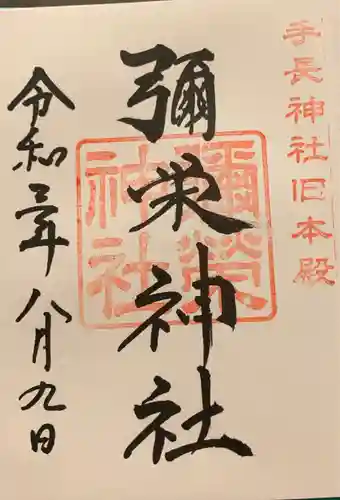 手長神社旧本殿
彌栄神社
彌榮
神社
令和三年八月九日